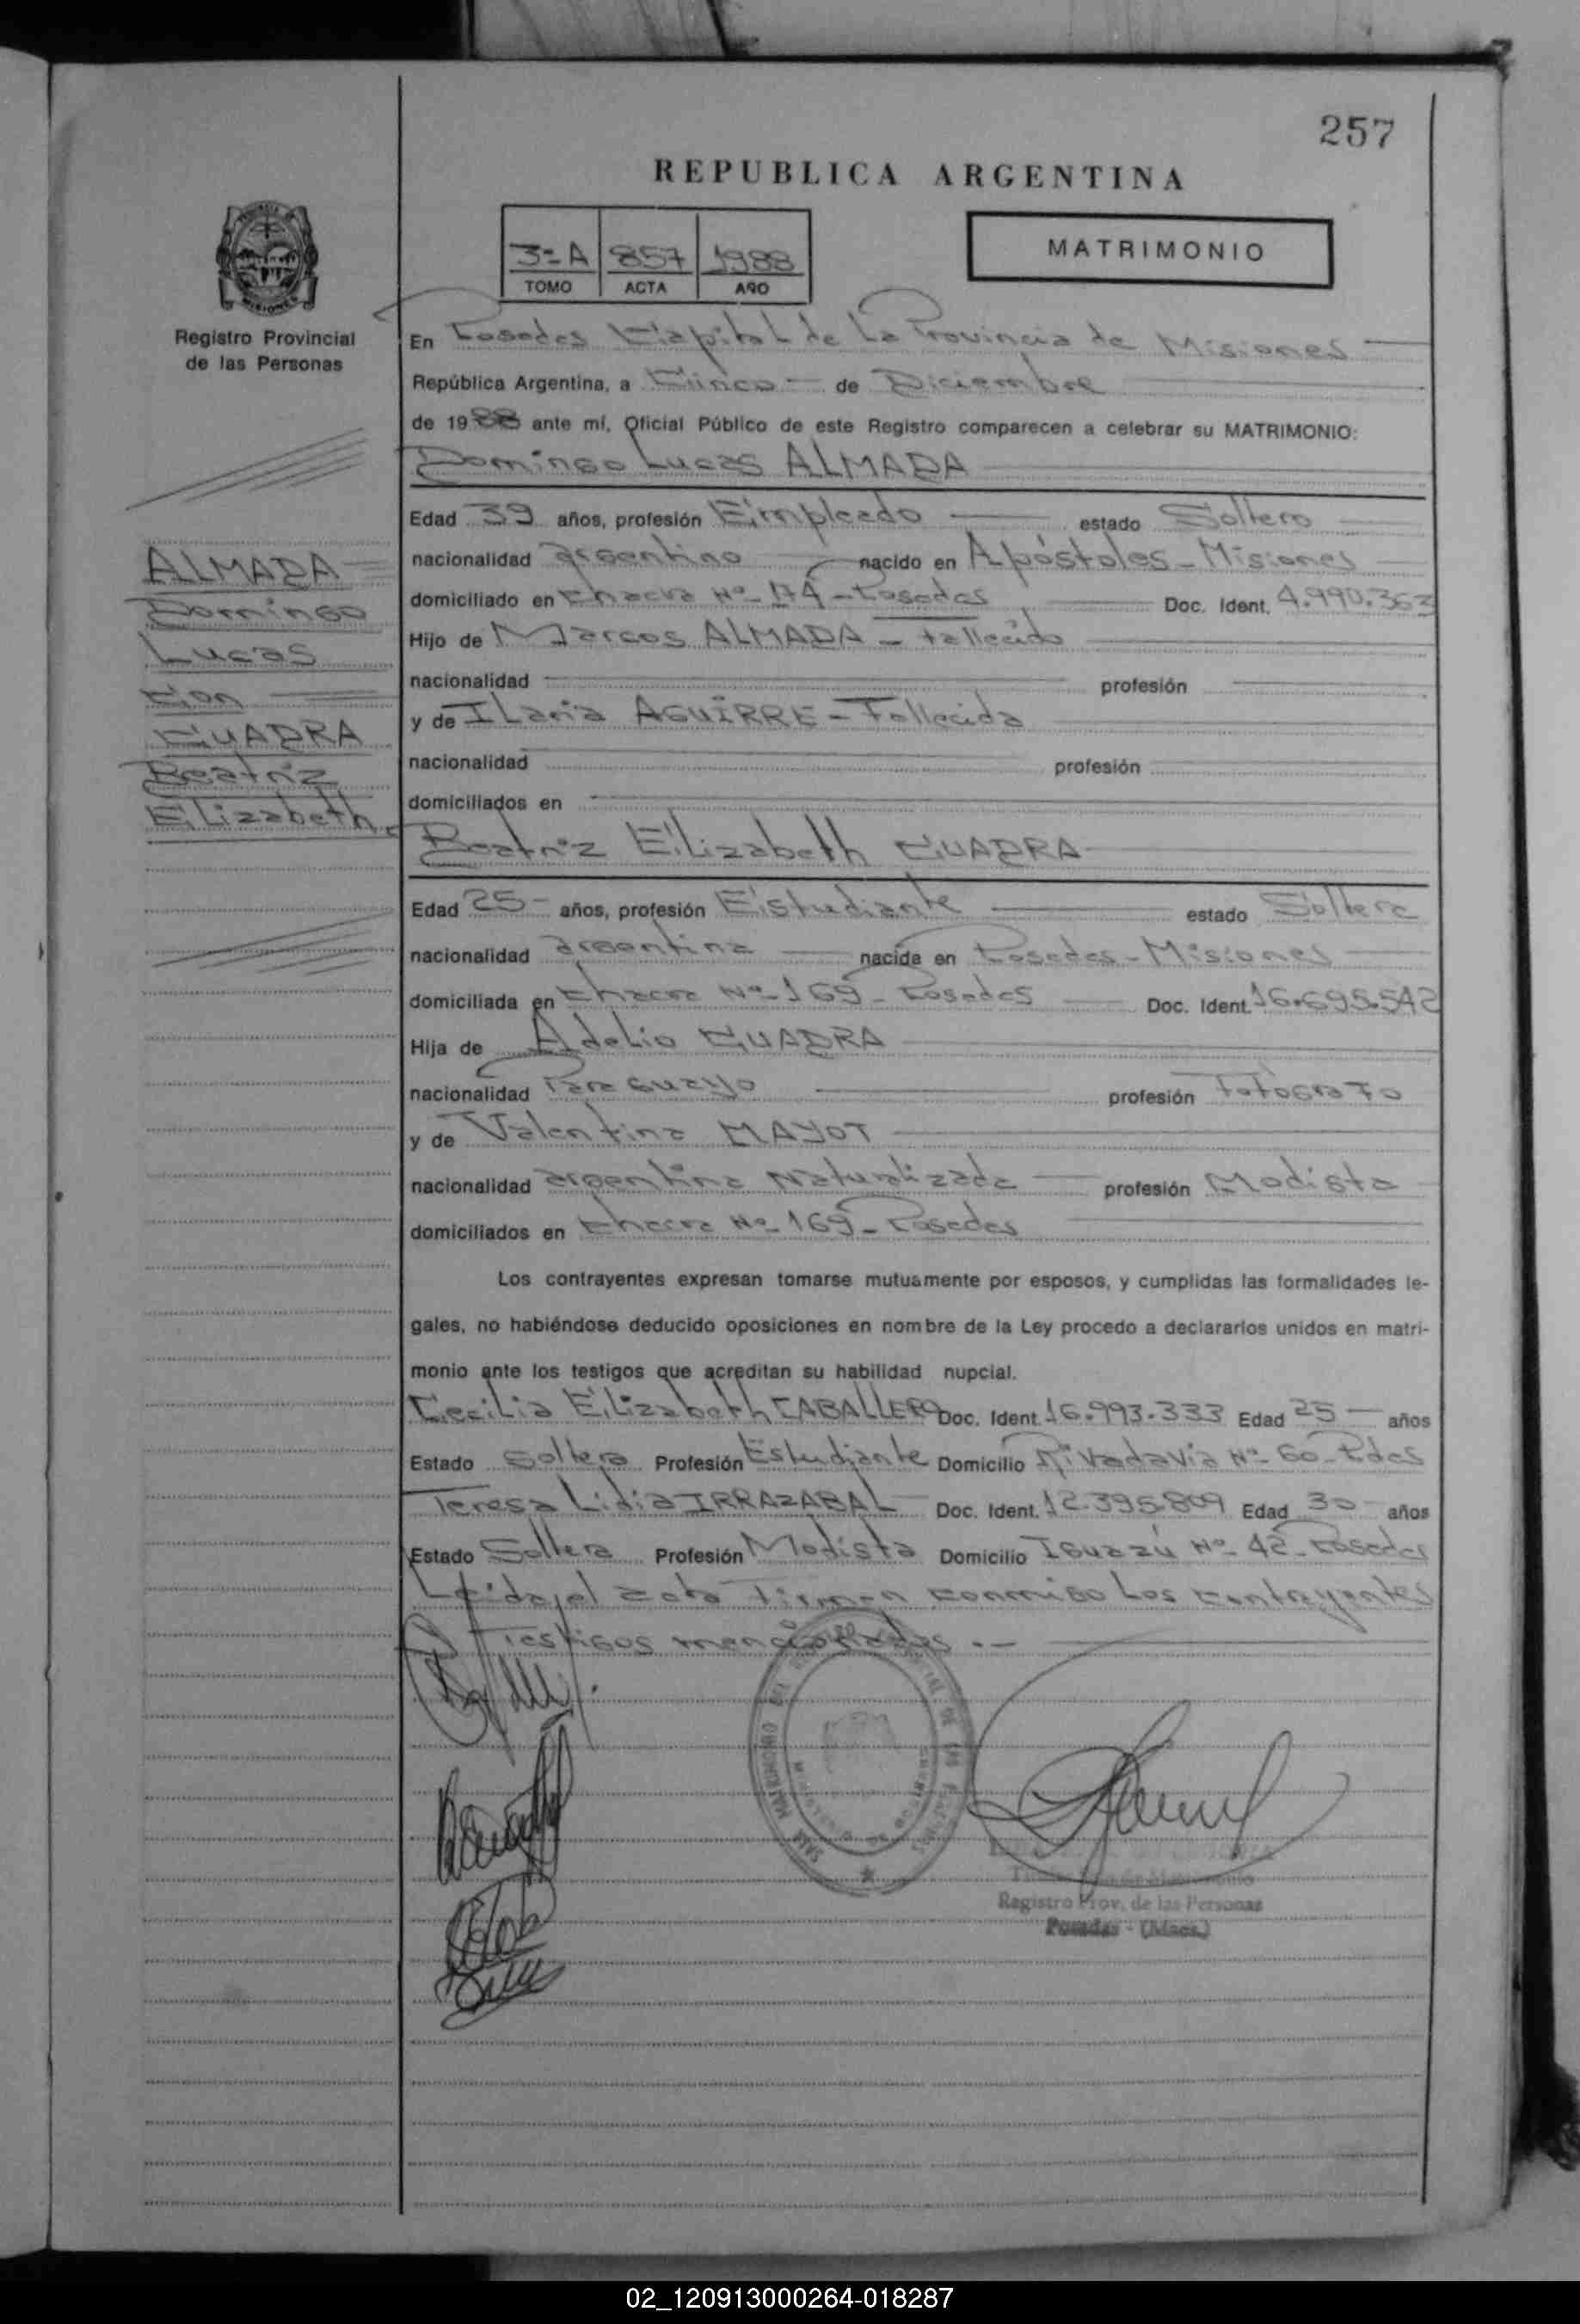 257
REPUBLICA ARGENTINA
3ª A 857 1988
TOMO ACTA AÑO
MATRIMONIO
Registro Provincial
de las Personas
En Posadas Capital de La Provincia de Misiones
República Argentina, a Cinco de Diciembre
de 1988 ante mí, Oficial Público de este Registro comparecen a celebrar su MATRIMONIO:
Domingo Lucas ALMADA
Edad 39 años, profesión Empleado estado Soltero
nacionalidad argentino nacido en Apóstoles - Misiones
domiciliado en Chacra Nº 174 - Posadas Doc. Ident. 4.990.363
Hijo de Marcos ALMADA - Fallecido
nacionalidad profesión
y de ILaria AGUIRRE - Fallecida
nacionalidad profesión
domiciliados en
ALMADA
Domingo
Lucas
Con
CUADRA
Beatriz
Elizabeth
Beatriz Elizabeth CUADRA
Edad 25 años, profesión Estudiante estado Soltera
nacionalidad argentina nacida en Posadas - Misiones
domiciliada en Chacra Nº 169 - Posadas Doc. Ident. 16.695.542
Hija de Adelio CUADRA
nacionalidad Paraguayo profesión Fotografo
y de Valentina MAYOT
nacionalidad argentina Naturalizada profesión Modista
domiciliados en Chacra Nº 169 - Posadas
Los contrayentes expresan tomarse mutuamente por esposos, y cumplidas las formalidades le-
gales, no habiéndose deducido oposiciones en nombre de la Ley procedo a declararlos unidos en matri-
monio ante los testigos que acreditan su habilidad nupcial.
Cecilia Elizabeth CABALLERO Doc. Ident. 16.993.333 Edad 25 años
Estado Soltera Profesión Estudiante Domicilio Rivadavia Nº 60 - Pdas
Teresa Lidia IRRAZABAL Doc. Ident. 12.395.809 Edad 30 años
Estado Soltera Profesión Modista Domicilio Iguazú Nº 42 - Posadas
Leida el acta Firman conmigo Los contrayentes
y Testigos mencionados.-
Registro Prov. de las Personas
Posadas - (Mnes.)
02_120913000264-018287